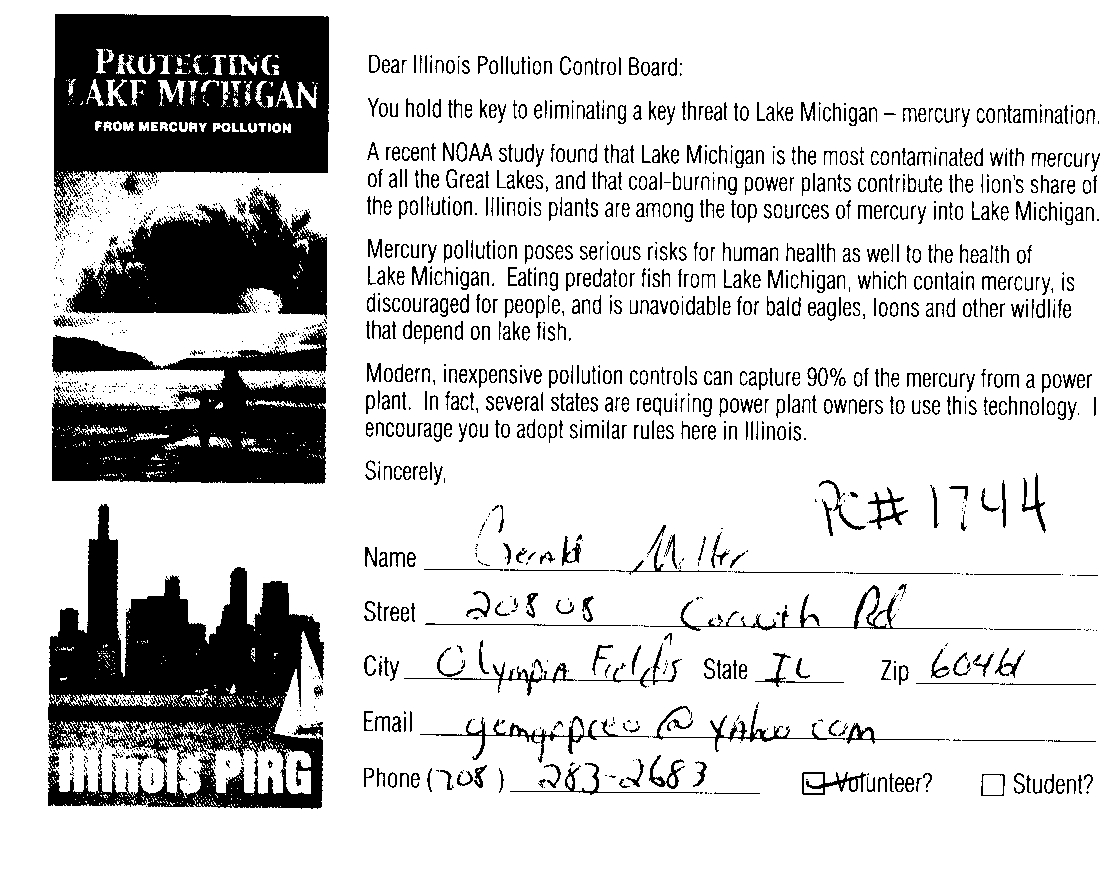 PROTECTING
LAKE MICHIGAN
FROM MERCURY POLLUTION
Illinois PIRG
Dear Illinois Pollution Control Board:
You hold the key to eliminating a key threat to Lake Michigan – mercury contamination.
A recent NOAA study found that Lake Michigan is the most contaminated with mercury
of all the Great Lakes, and that coal-burning power plants contribute the lion's share of
the pollution. Illinois plants are among the top sources of mercury into Lake Michigan.
Mercury pollution poses serious risks for human health as well to the health of
Lake Michigan. Eating predator fish from Lake Michigan, which contain mercury, is
discouraged for people, and is unavoidable for bald eagles, loons and other wildlife
that depend on lake fish.
Modern, inexpensive pollution controls can capture 90% of the mercury from a power
plant. In fact, several states are requiring power plant owners to use this technology. I
encourage you to adopt similar rules here in Illinois.
Sincerely,
PC# 1744
Name Gerald Miller
Street 20808 Corinth Rd
City Olympia Fields State IL Zip 60461
Email @ yahoo com
Phone (708) 283-2683 Volunteer? Student?